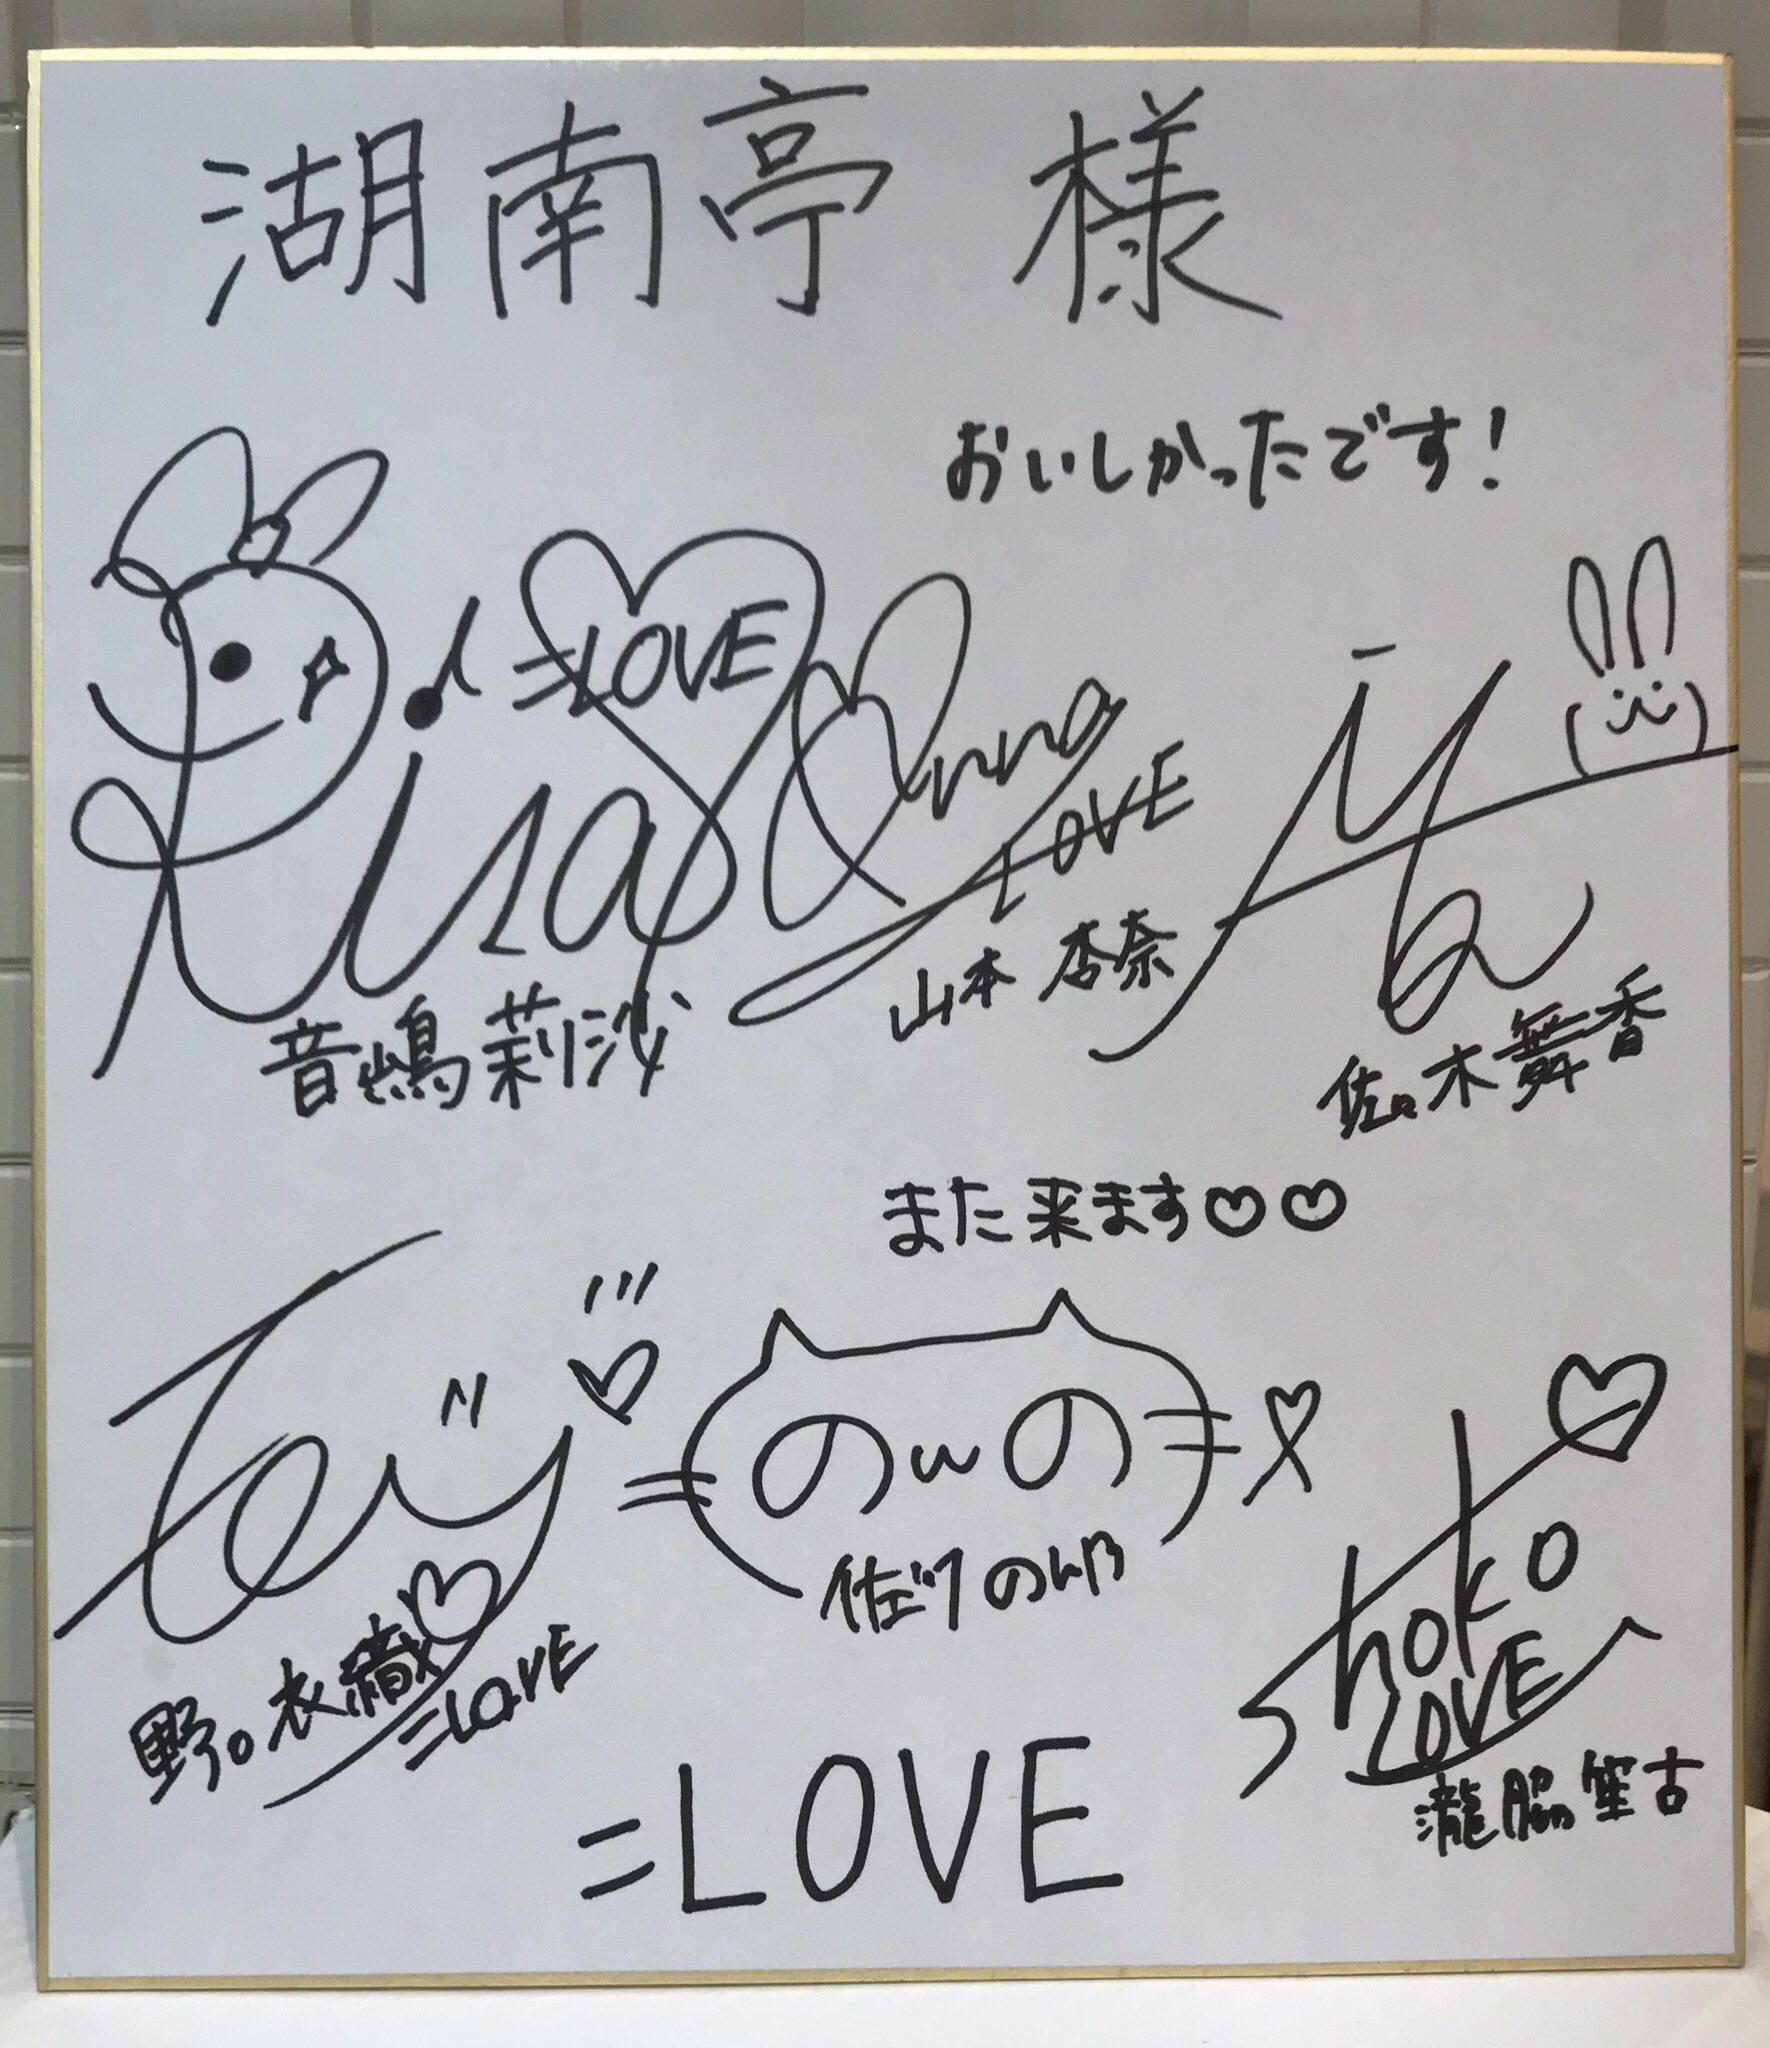 湖南亭 様
おいしかったです!
Risa
=LOVE
Anna
LOVE
音嶋莉沙
山本 杏奈
佐々木舞香
また来ます♡♡
のwの
佐々木のの
野口衣織
=LOVE
shoko
LOVE
瀧脇笙古
=LOVE